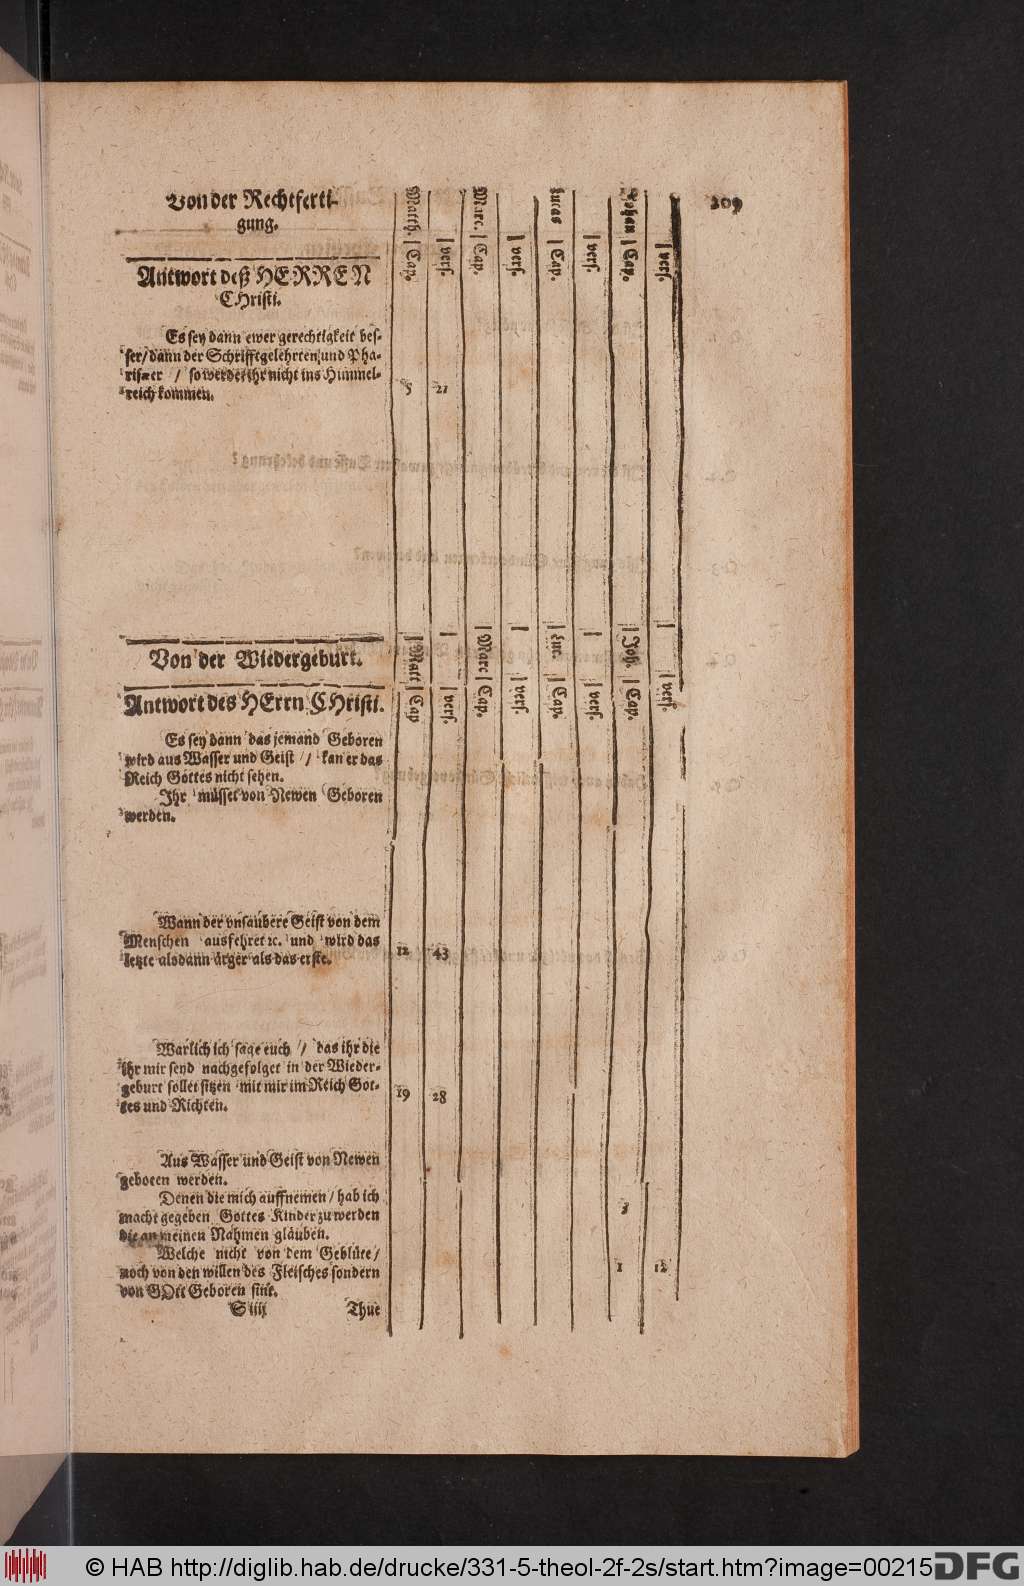 209
Von der Rechtferti-
gung.
Matth. | Cap. | vers. Marc. | Cap. | vers. Lucas | Cap. | vers. Johan | Cap. | vers.
Antwort deß HERREN
CHristi.
Es sey dann ewer gerechtigkeit bes-
ser/dann der Schrifftgelehrten und Pha-
risæer / so werdet ihr nicht ins Himmel-
reich kommen. 5 21
Von der Wiedergeburt.
Matt | Cap | vers. Marc | Cap. | vers. Luc. | Cap. | vers. Joh. | Cap. | vers.
Antwort des HErrn CHristi.
Es sey dann das jemand Geboren
wird aus Wasser und Geist / kan er das
Reich Gottes nicht sehen.
Ihr müsset von Newen Geboren
werden.
Wann der vnsaubere Geist von dem
Menschen ausfehret ꝛc. und wird das
letzte alsdann ärger als das erste. 12 43
Warlich ich sage euch / das ihr die
ihr mir seyd nachgefolget in der Wieder-
geburt sollet sitzen mit mir im Reich Got-
tes und Richten. 19 28
Aus Wasser und Geist von Newen
geboren werden.
Denen die mich auffnemen / hab ich
macht gegeben Gottes Kinder zu werden 3
die an meinen Nahmen gläuben.
Welche nicht von dem Geblüte /
noch von den willen des Fleisches sondern 1 12
von GOtt Geboren sint.
S iiij Thue
© HAB http://diglib.hab.de/drucke/331-5-theol-2f-2s/start.htm?image=00215
DFG